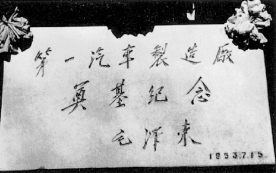 第一汽车製造廠
奠基纪念
毛泽东
1953.7.15